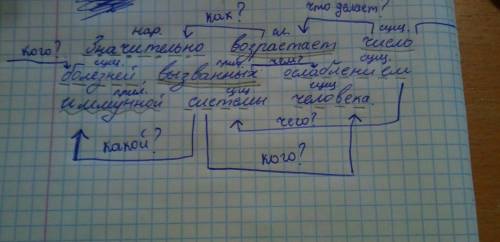 как? что делает?
нар. гл. сущ.
кого? Значительно возрастает число
сущ. прич. чем? сущ.
болезней, вызванных ослаблением
прил. сущ. сущ.
иммунной системы человека.
чего?
какой? кого?